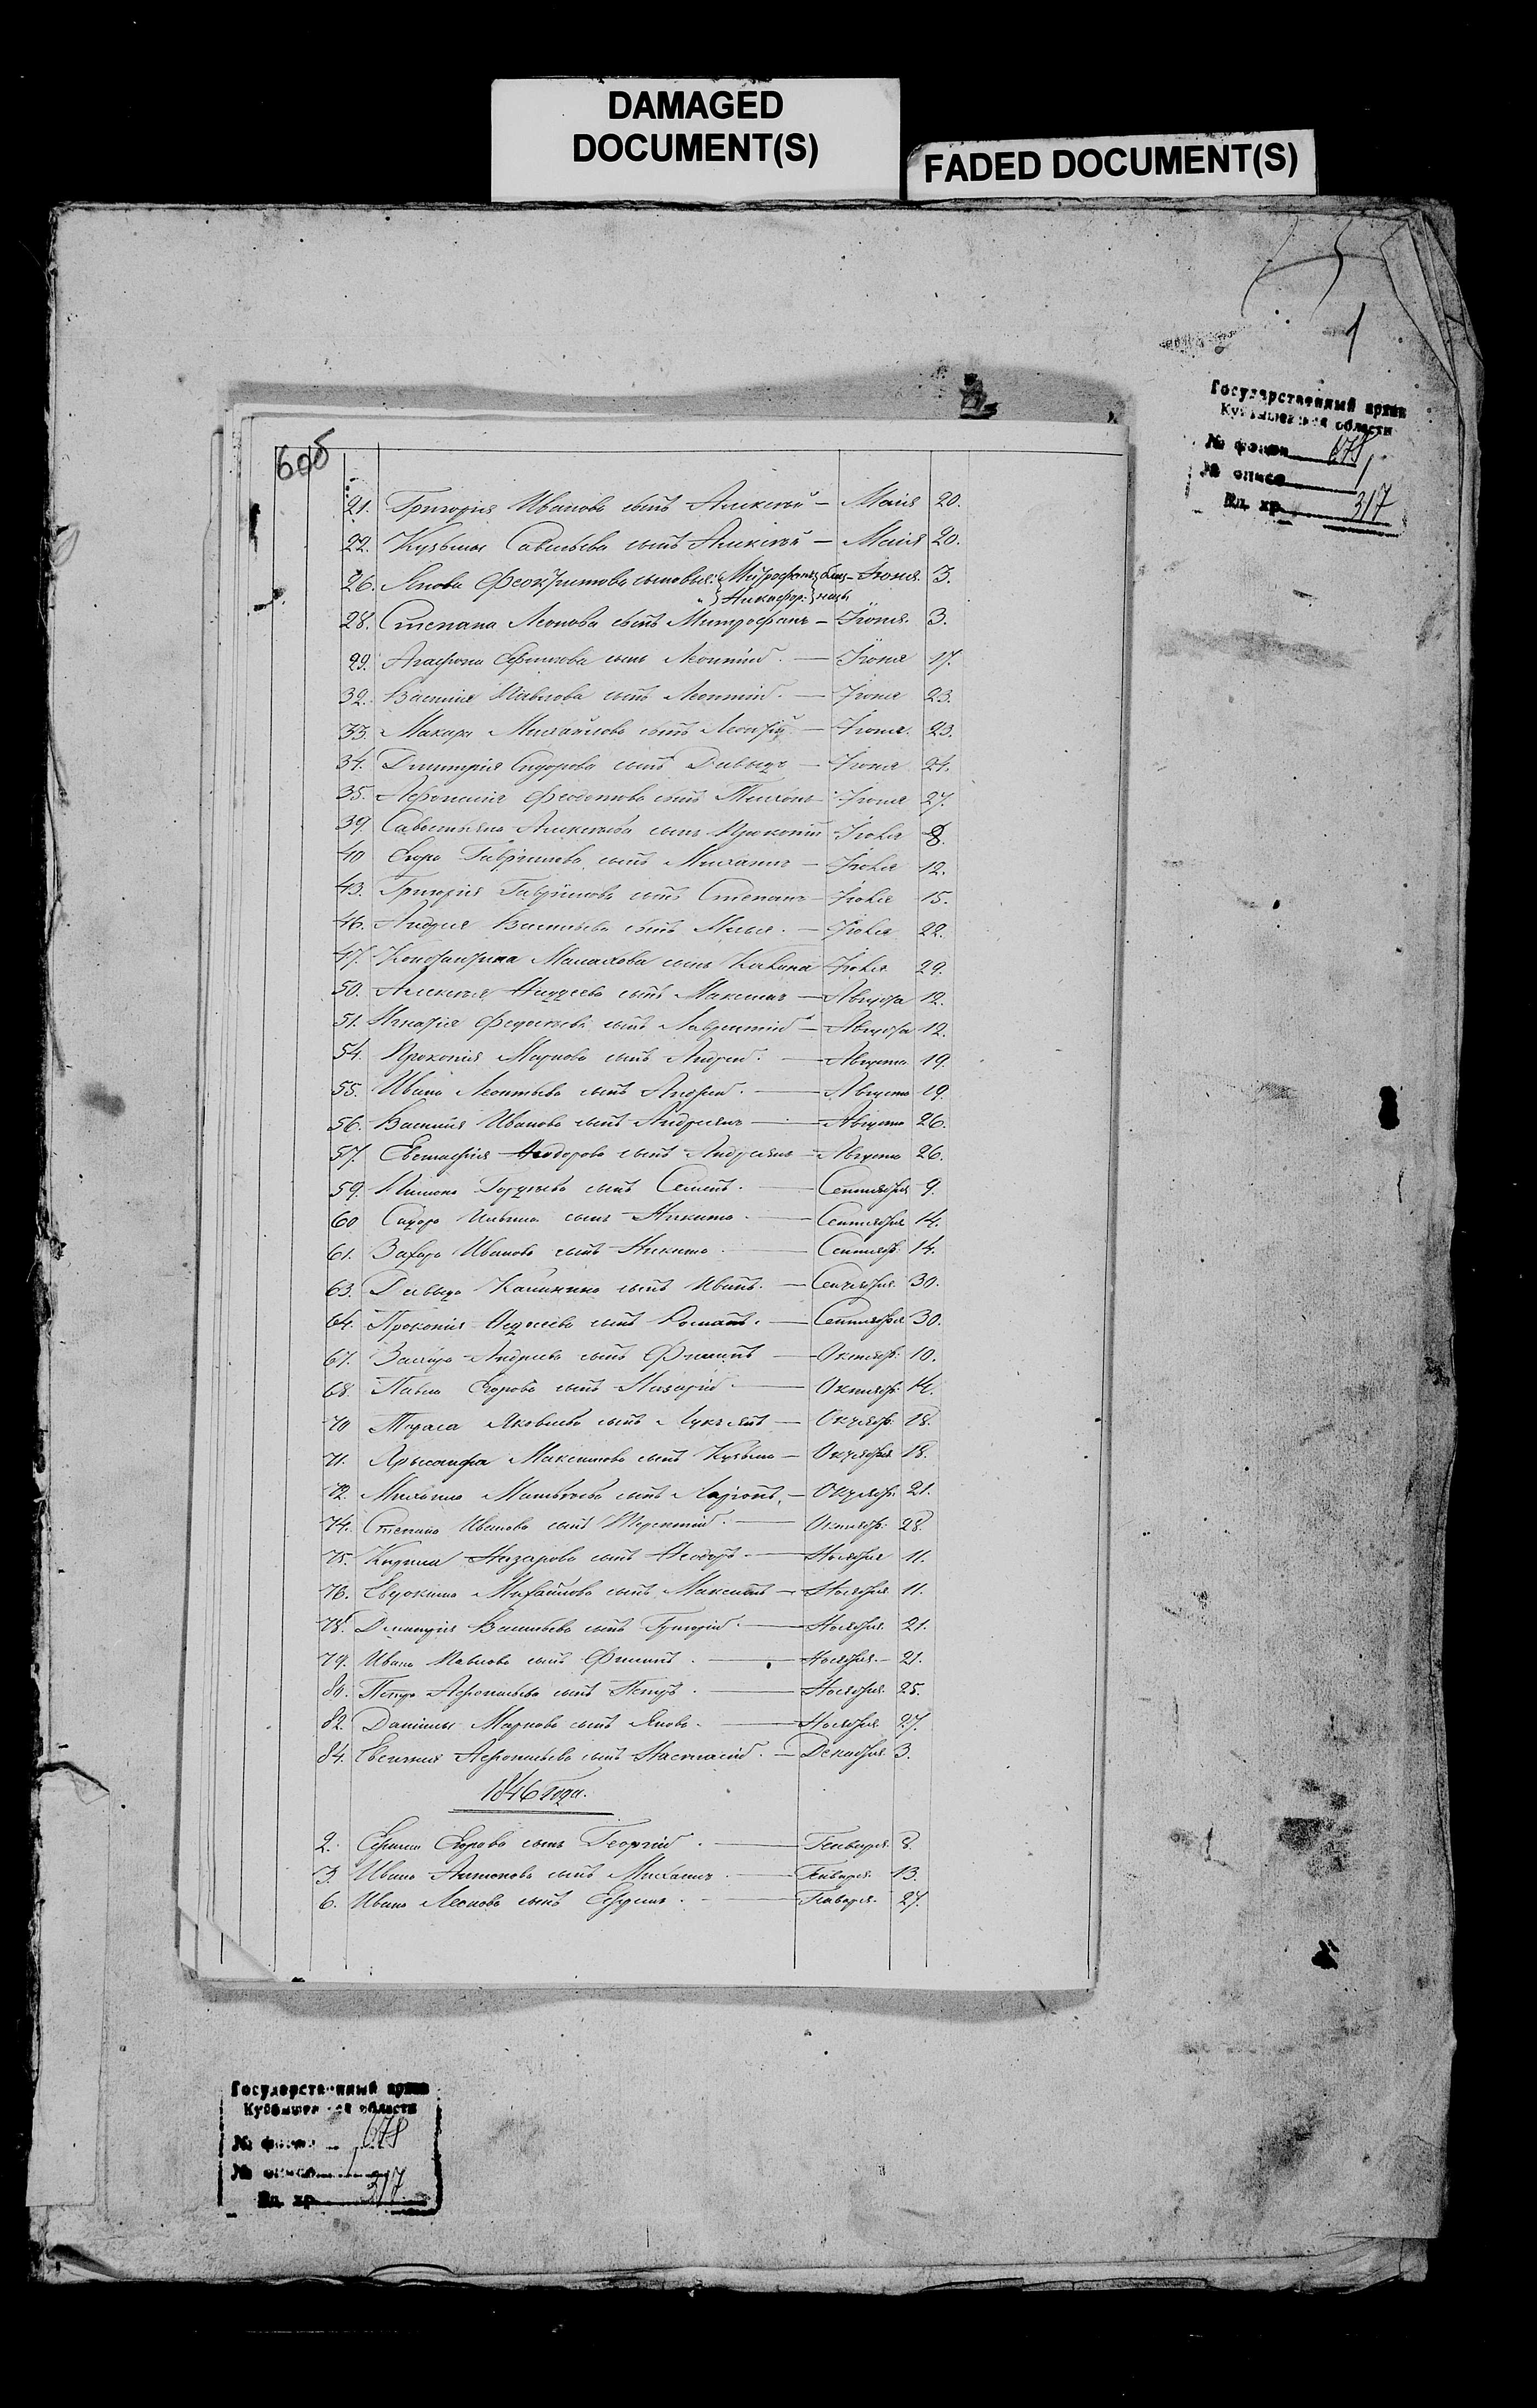 DAMAGED
DOCUMENT(S)
FADED DOCUMENT(S)
1
Государственный архив
Куйбышевской области
№ фонда 678
№ описи 1
Ед. хр. 317
60б
21. Григорія Иванова сынъ Алексѣй — Маія 20.
22. Кузьмы Савельева сынъ Алексѣй — Маія 20.
26. Якова Феоктистова сыновья: Митрофанъ близ- Іюня. 3.
Никифоръ нецы
28. Степана Леонова сынъ Митрофанъ — Іюня. 3.
29. Агафона сынъ Леонтій. — Іюня 17.
32. Василія Павлова сынъ Леонтій. — Іюня 23.
33. Макара Михайлова сынъ Леонтій — Іюня. 23.
34. Дмитрія Сидорова сынъ Давыдъ — Іюня 24.
35. Афонасія Федотова сынъ Іюня 27.
39. Савостьяна Алексѣева сынъ Прокопій Іюля 8.
40 Егора Гаврилова сынъ Михаилъ — Іюля 12.
43. Григорія Гаврилова сынъ Степанъ — Іюля 15.
46. Андрея Васильева сынъ Илья. — Іюля 22.
47. Константина Малахова сынъ Іюля 29.
50. Алексѣя сынъ Максимъ — Августа 12.
51. Игнатія Федосѣева сынъ Лаврентій — Августа 12.
54. Прокопія Маркова сынъ Андрей. — Августа 19.
55. Ивана Леонтьева сынъ Андрей. — Августа 19.
56. Василія Иванова сынъ Андреянъ — Августа 26.
57. Евстафія Ѳеодорова сынъ Андреянъ — Августа 26.
59. Гордѣева сынъ Семенъ. — Сентября 9.
60 Сидора Ильина сынъ Никита. — Сентября 14.
61. Захара Иванова сынъ Никита. — Сентябр: 14.
63. Давыда Калинина сынъ Иванъ. — Сентября. 30.
64. Прокопія Федосѣева сынъ Романъ. — Сентября 30.
67. Андреева сынъ Филипъ — Октябр: 10.
68. Павла Егорова сынъ Назарій. — Октябр: 14.
70 Тараса Яковлева сынъ Лукъянъ — Октябр: 18.
71. Хрысанфа Максимова сынъ Кузьма — Октября 18.
72. Михаила Матвѣева сынъ Ларіонъ. — Октябр: 21.
74. Степана Иванова сынъ Терентій. — Октябр: 28.
75. Кирилы Назарова сынъ Ѳеодоръ. — Ноября 11.
76. Евдокима Михайлова сынъ Максимъ — Ноября 11.
78. Дмитрія Васильева сынъ Григорій. — Ноября. 21.
79. Ивана Павлова сынъ Филипъ. — Ноября. — 21.
80. Петра Афонасьева сынъ Петръ. — Ноября. 25.
82. Данилы Маркова сынъ Яковъ. — Ноября. 27.
84. Евсигнія Афонасьева сынъ — Декабря. 3.
1846 года.
2. Ефима Егорова сынъ Георгій. — Генваря. 8.
3. Ивана Антонова сынъ Михаилъ. — Генваря. 13.
6. Ивана Леонова сынъ Ефремъ. — Генваря. 27.
Государственный архив
Куйбышевской области
№ фонда 678
№ описи 1
Ед. хр. 317